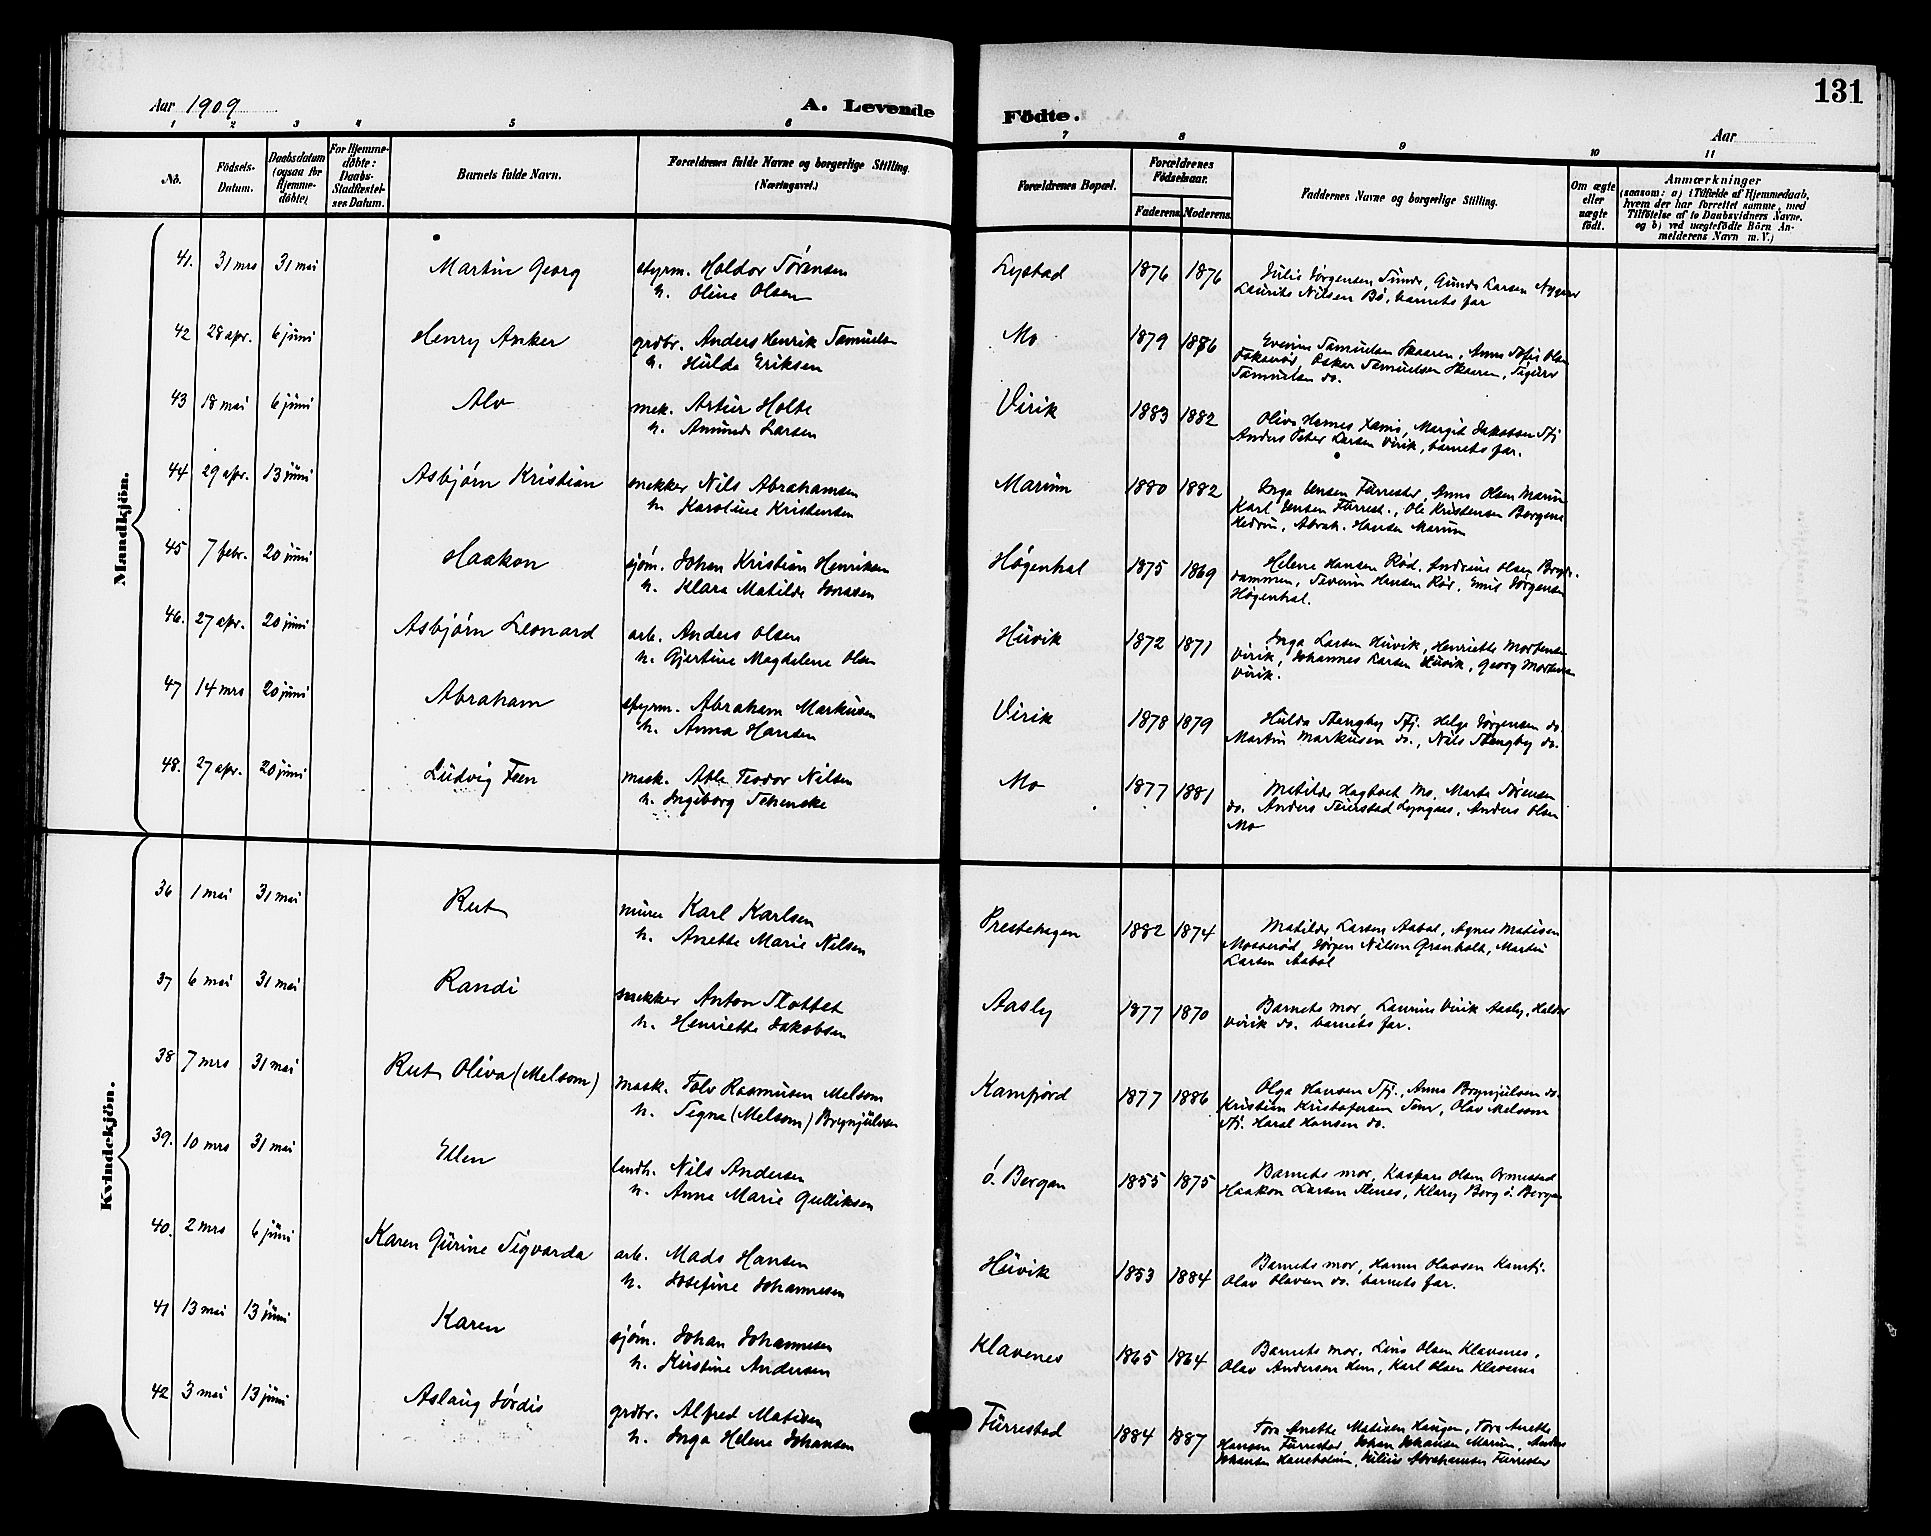 Aar 1909
A. Levende
Födte.
131
Aar
1 2 3 4 5 6 7 8 9 10 11
No.
Födsels-Datum.
Daabsdatum (ogsaa for Hjemme-döbte)
For Hjemme-döbte: Daabs-Stadfæstel-ses Datum.
Barnets fulde Navn.
Forældrenes fulde Navne og borgerlige Stilling. (Næringsvei.)
Forældrenes Bopæl.
Forældrenes Födselsaar.
Faderens Moderens
Faddernes Navne og borgerlige Stilling.
Om ægte eller uægte födt.
Anmærkninger
(saasom: a) i Tilfælde af Hjemmedaab,
hvem der har forrettet samme, med
Tilföielse af to Daabsvidners Navne,
og b) ved uægtefödte Börn An-
melderens Navn m. V.)
Mandkjön.
41. 31 mrs 31 mai Martin Georg styrm. Haldor Sørensen
h. Oline Olsen
Lystad 1876 1876 Julie Jørgensen Sunde, Gunda Larsen
Laurits Nilsen Bö, barnets far
42 28 apr. 6 juni Henry Anker grdbr. Anders Henrik Samuelsen
h. Hulda Eriksen
Mo 1879 1886 Samuelsen Skaaren, Anna Sofie Olsen
Oskar Samuelsen Skaaren, Sigurd
Samuelsen do.
43 18 mai 6 juni Alv mek. Artur Holte
h. Amunda Larsen
Virik 1883 1882 Oliva Hemes, Margit Jakobsen Sfj
Anders Peter Larsen Virik, barnets far.
44 29 apr. 13 juni Asbjørn Kristian snekker Nils Abrahamsen
h. Karoline Kristensen
Marum 1880 1882 Inga Jensen Furrestad, Anna Olsen Marum
Karl Jensen Furrest., Ole Kristensen Bergene
Hedrum, Abrah. Hansen Marum
45 7 febr. 20 juni Haakon sjöm. Johan Kristian Henriksen
h. Klara Matilde Jonasen
Høgenhal 1875 1869 Helene Hansen Röd, Andreas Olsen Brygge-
dammen, Severin Hansen Röd, Emil Jörgensen
Høgenhal.
46. 27 apr. 20 juni Asbjørn Leonard arb. Anders Olsen
h. Gjertine Magdalene Olsen
Huvik 1872 1871 Inga Larsen Huvik, Henriette Mortensen
Virik, Johannes Larsen Huvik, Georg Mortensen
Virik.
47 14 mrs 20 juni Abraham styrm. Abraham Markusen
h. Anna Hansen
Virik 1878 1879 Hulda Stangby Sfj. Helga Jörgensen do.
Martin Markusen do., Nils Stangby do.
48. 27 apr. 20 juni Ludvig Feen mask. Atle Teodor Nilsen
h. Ingeborg Schenske
Mo 1877 1881 Matilde Hagtvet Mo, Marta Sörensen
do. Anders Seierstad Lyngaas, Anders Olsen
Mo
Kvindekjön.
36 1 mai 31 mai Rut murer Karl Karlsen
h. Anette Marie Nilsen
Prestehagen 1882 1874 Matilde Larsen Aabol, Agnes Matisen
Mosserød, Jörgen Nilsen Granholt, Martin
Larsen Aabol
37 6 mai 31 mai Randi snekker Anton Slottet
h. Henriette Jakobsen
Aasly 1877 1870 Barnets mor, Laurine Virik Aasly, Haldor
Virik do. barnets far.
38 7 mrs 31 mai Rut Oliva (Melsom) mask. Tolv Rasmusen Melsom
h. Signe (Melsom) Brynjulvsen
Kamfjord 1877 1886 Olga Hansen Sfj., Anna Brynjulvsen do.
Kristian Kristofersen Sem, Olav Melsom
Sfj. Haral Hansen do.
39. 10 mrs 31 mai Ellen landh. Nils Andersen
h. Anna Marie Gulliksen
ö. Bergan 1855 1875 Barnets mor, Kaspara Olsen Ormestad
Haakon Larsen Stenes, Klary Borg ö. Bergan
40. 2 mrs 6 juni Karen Gurine Sigvarda arb. Mads Hansen
h. Josefine Johannesen
Huvik 1853 1884 Barnets mor, Hanna Olavsen Kamfj.
Olav Olavsen do. barnets far.
41 13 mai 13 juni Karen sjöm. Johan Johannesen
h. Kirstine Andersen
Klavenes 1865 1864 Barnets mor, Lina Olsen Klavenes,
Olav Andersen Hem, Karl Olsen Klavenes
42 3 mai 13 juni Aslaug Jördis grdbr. Alfred Matisen
h. Inga Helene Johansen
Furrestad 1884 1887 Tora Anette Matisen Haugen, Tora Anette
Hansen Furrestad, Johan Johansen Marum, Anders
Johansen Haneholmen, Julius Abrahamsen Furrestad